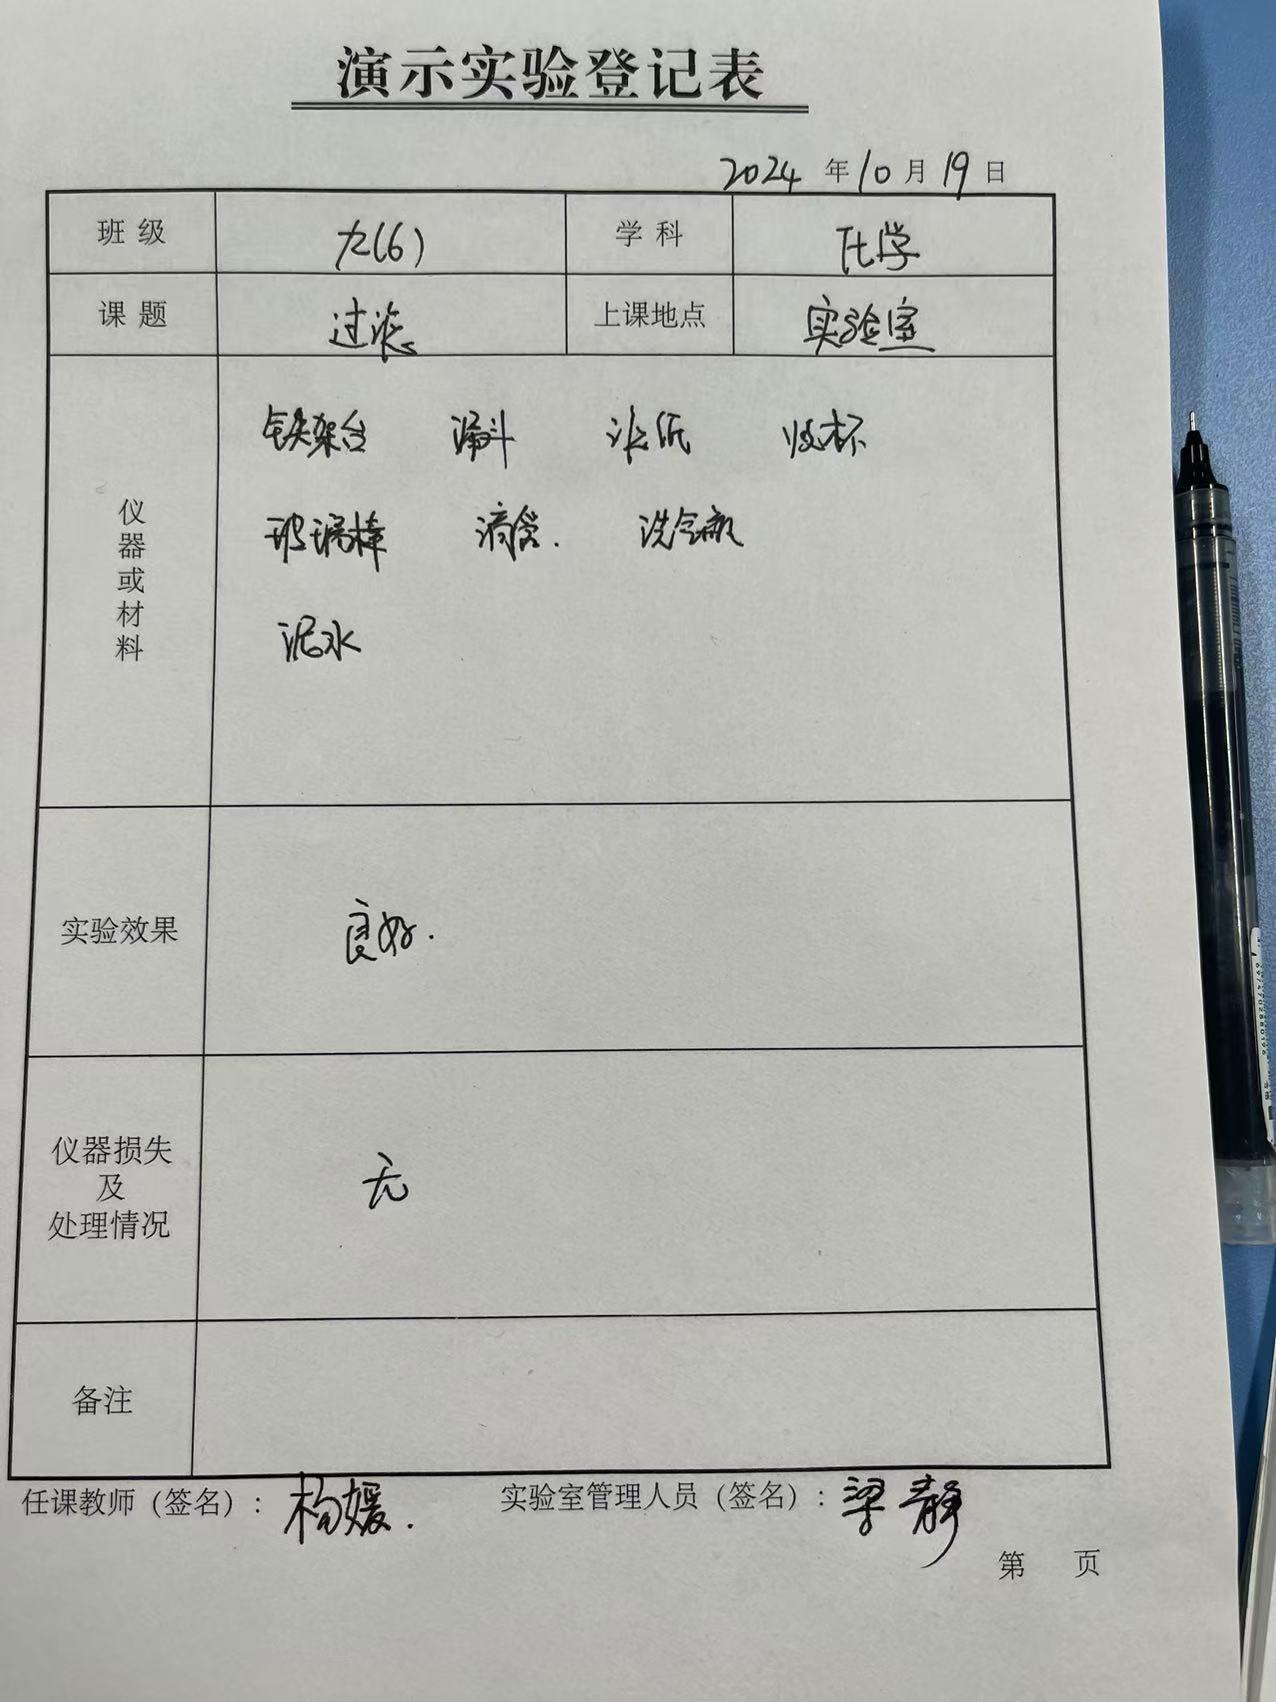 演示实验登记表
2024 年 10 月 19 日
班级 九(6) 学科 化学
课题 过滤 上课地点 实验室
仪器或材料
铁架台 漏斗 滤纸 烧杯
玻璃棒 滴管. 洗气瓶
泥水
实验效果 良好.
仪器损失
及
处理情况
无
备注
任课教师（签名）: 杨媛. 实验室管理人员（签名）: 梁静
第 页